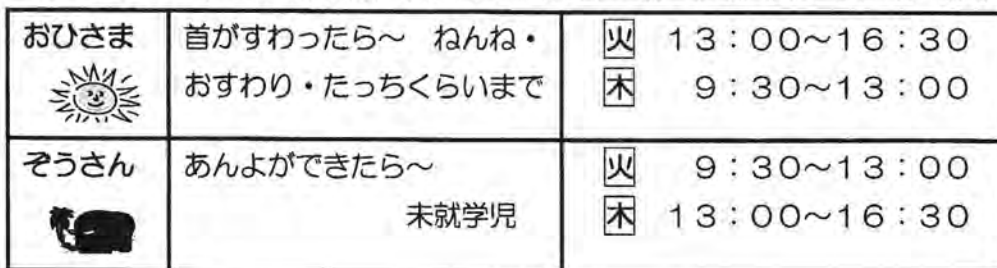 おひさま
首がすわったら～　ねんね・
おすわり・たっちくらいまで
火　１３：００～１６：３０
木　９：３０～１３：００
ぞうさん
あんよができたら～
未就学児
火　９：３０～１３：００
木　１３：００～１６：３０